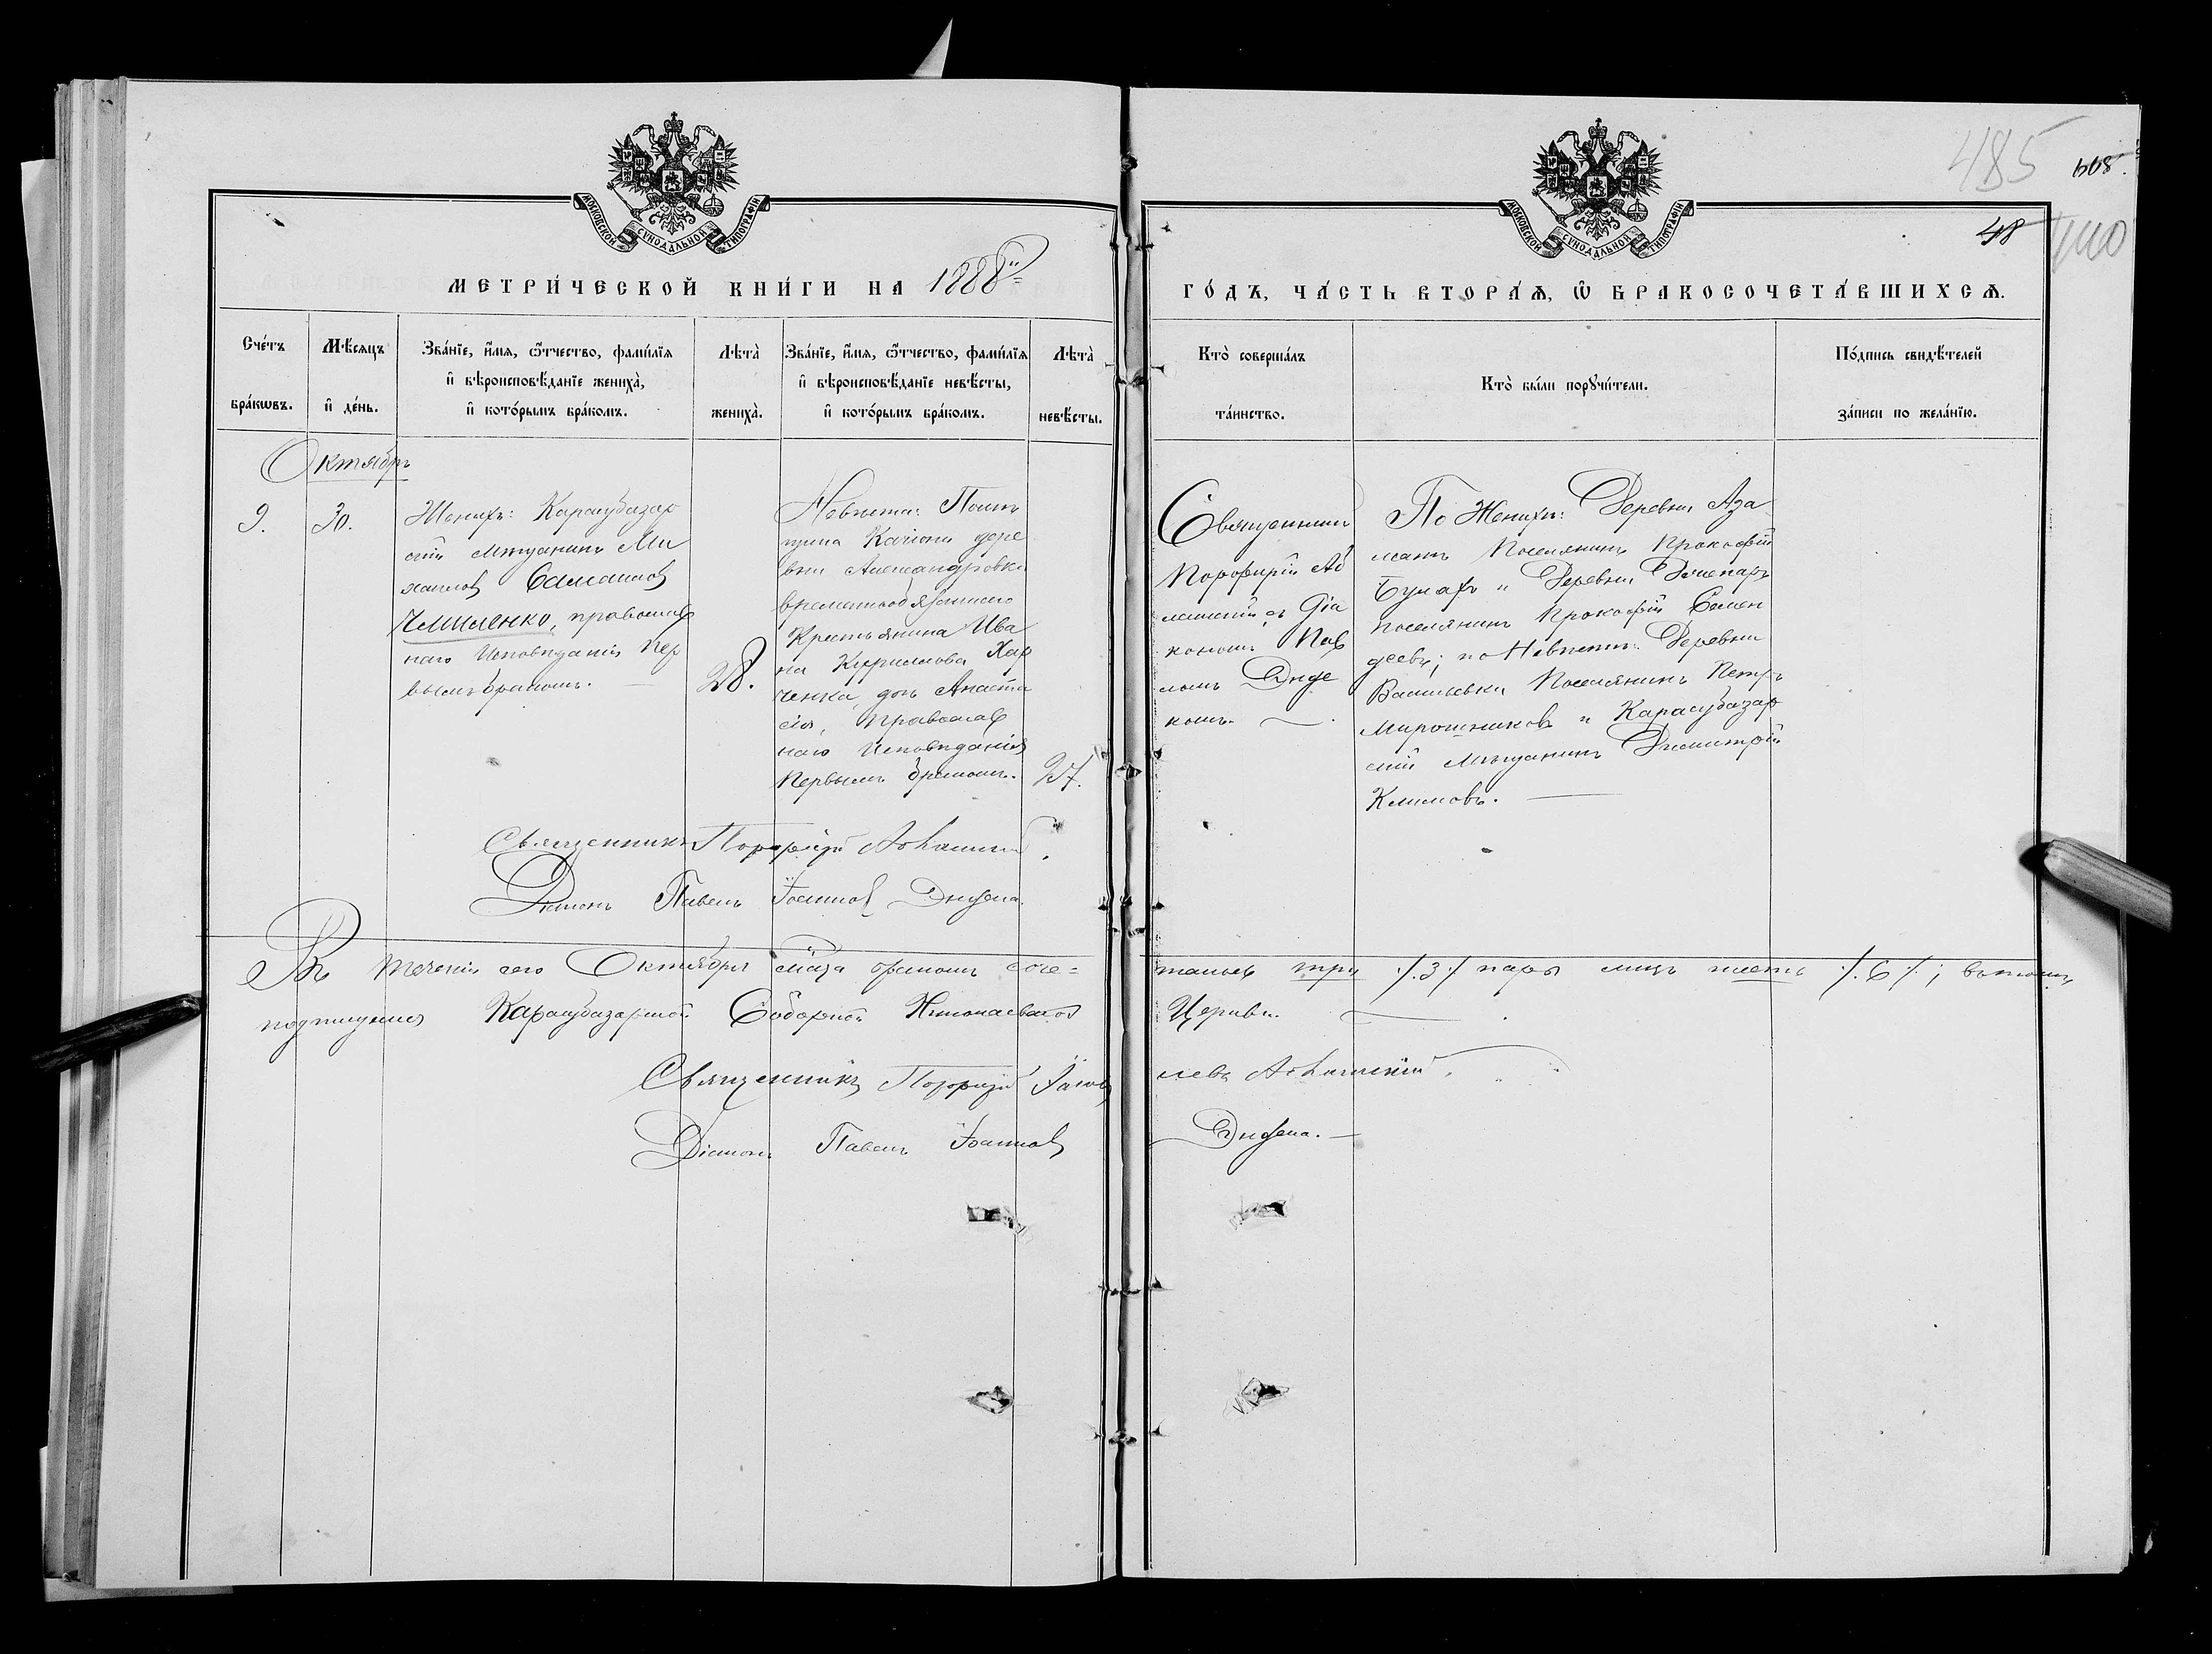 485
608.
48
МОСКОВСКОЙ СѴНОДАЛЬНОЙ ТИПОГРАФІИ
МОСКОВСКОЙ СѴНОДАЛЬНОЙ ТИПОГРАФІИ
МЕТРИ́ЧЕСКОЙ КНИ́ГИ НА 1888й
ГО́ДЪ, ЧА́СТЬ ВТОРА́Ѧ, Ѡ҆ БРАКОСОЧЕТА́ВШИХСѦ.
Сче́тъ
бра́кѡвъ.
Мѣ́сяцъ
и҆ де́нь.
Зва́нїе, и҆́мѧ, ѻ҆́тчество, фами́лїѧ
и҆ вѣроисповѣ́данїе жениха̀,
и҆ кото́рымъ бра́комъ.
Лѣта̀
жениха̀.
Зва́нїе, и҆́мѧ, ѻ҆́тчество, фами́лїѧ
и҆ вѣроисповѣ́данїе невѣ́сты,
и҆ кото́рымъ бра́комъ.
Лѣта̀
невѣ́сты.
Кто̀ соверша́лъ
та́инство.
Кто̀ бы́ли порꙋчи́тели.
По́дпись свидѣ́телей
за́писи по жела́нїю.
Октябрь
9.
30.
Женихъ: Карасубазар
скій мѣщанинъ Ми
хаилъ Самоиловъ
Чмиленко, православ
наго Исповѣданія пер
вымъ бракомъ.
28.
Невѣста:
дере
вни Александровки
временнообязаннаго
Крестьянина Ива
на Кириллова Хар
ченка, дочь Анаста
сія, Православ
наго Исповѣданія
Первымъ бракомъ.
27.
Священникъ
Порфирій
съ Діа
кономъ Пав
ломъ
комъ.
По Женихѣ: Деревни Аза
матъ Поселянинъ Прокофій
и Деревни
поселянинъ Прокофій Семен
по Невѣстѣ: Деревни
Васильевки Поселянинъ Петръ
Мирошниковъ и Карасубазар
скій Мѣщанинъ Димитрій
Климовъ.
Священникъ Порфирій
Діаконъ Павелъ Іоанновъ
Въ теченіи сего Октября мѣсяца бракомъ соче=
талось три /.3./ пары лицъ шесть /.6./; въ томъ
подпишемся Карасубазарской Соборной Николаевской
Церкви.
Священникъ Порфирій
Діаконъ Павелъ Іоанновъ